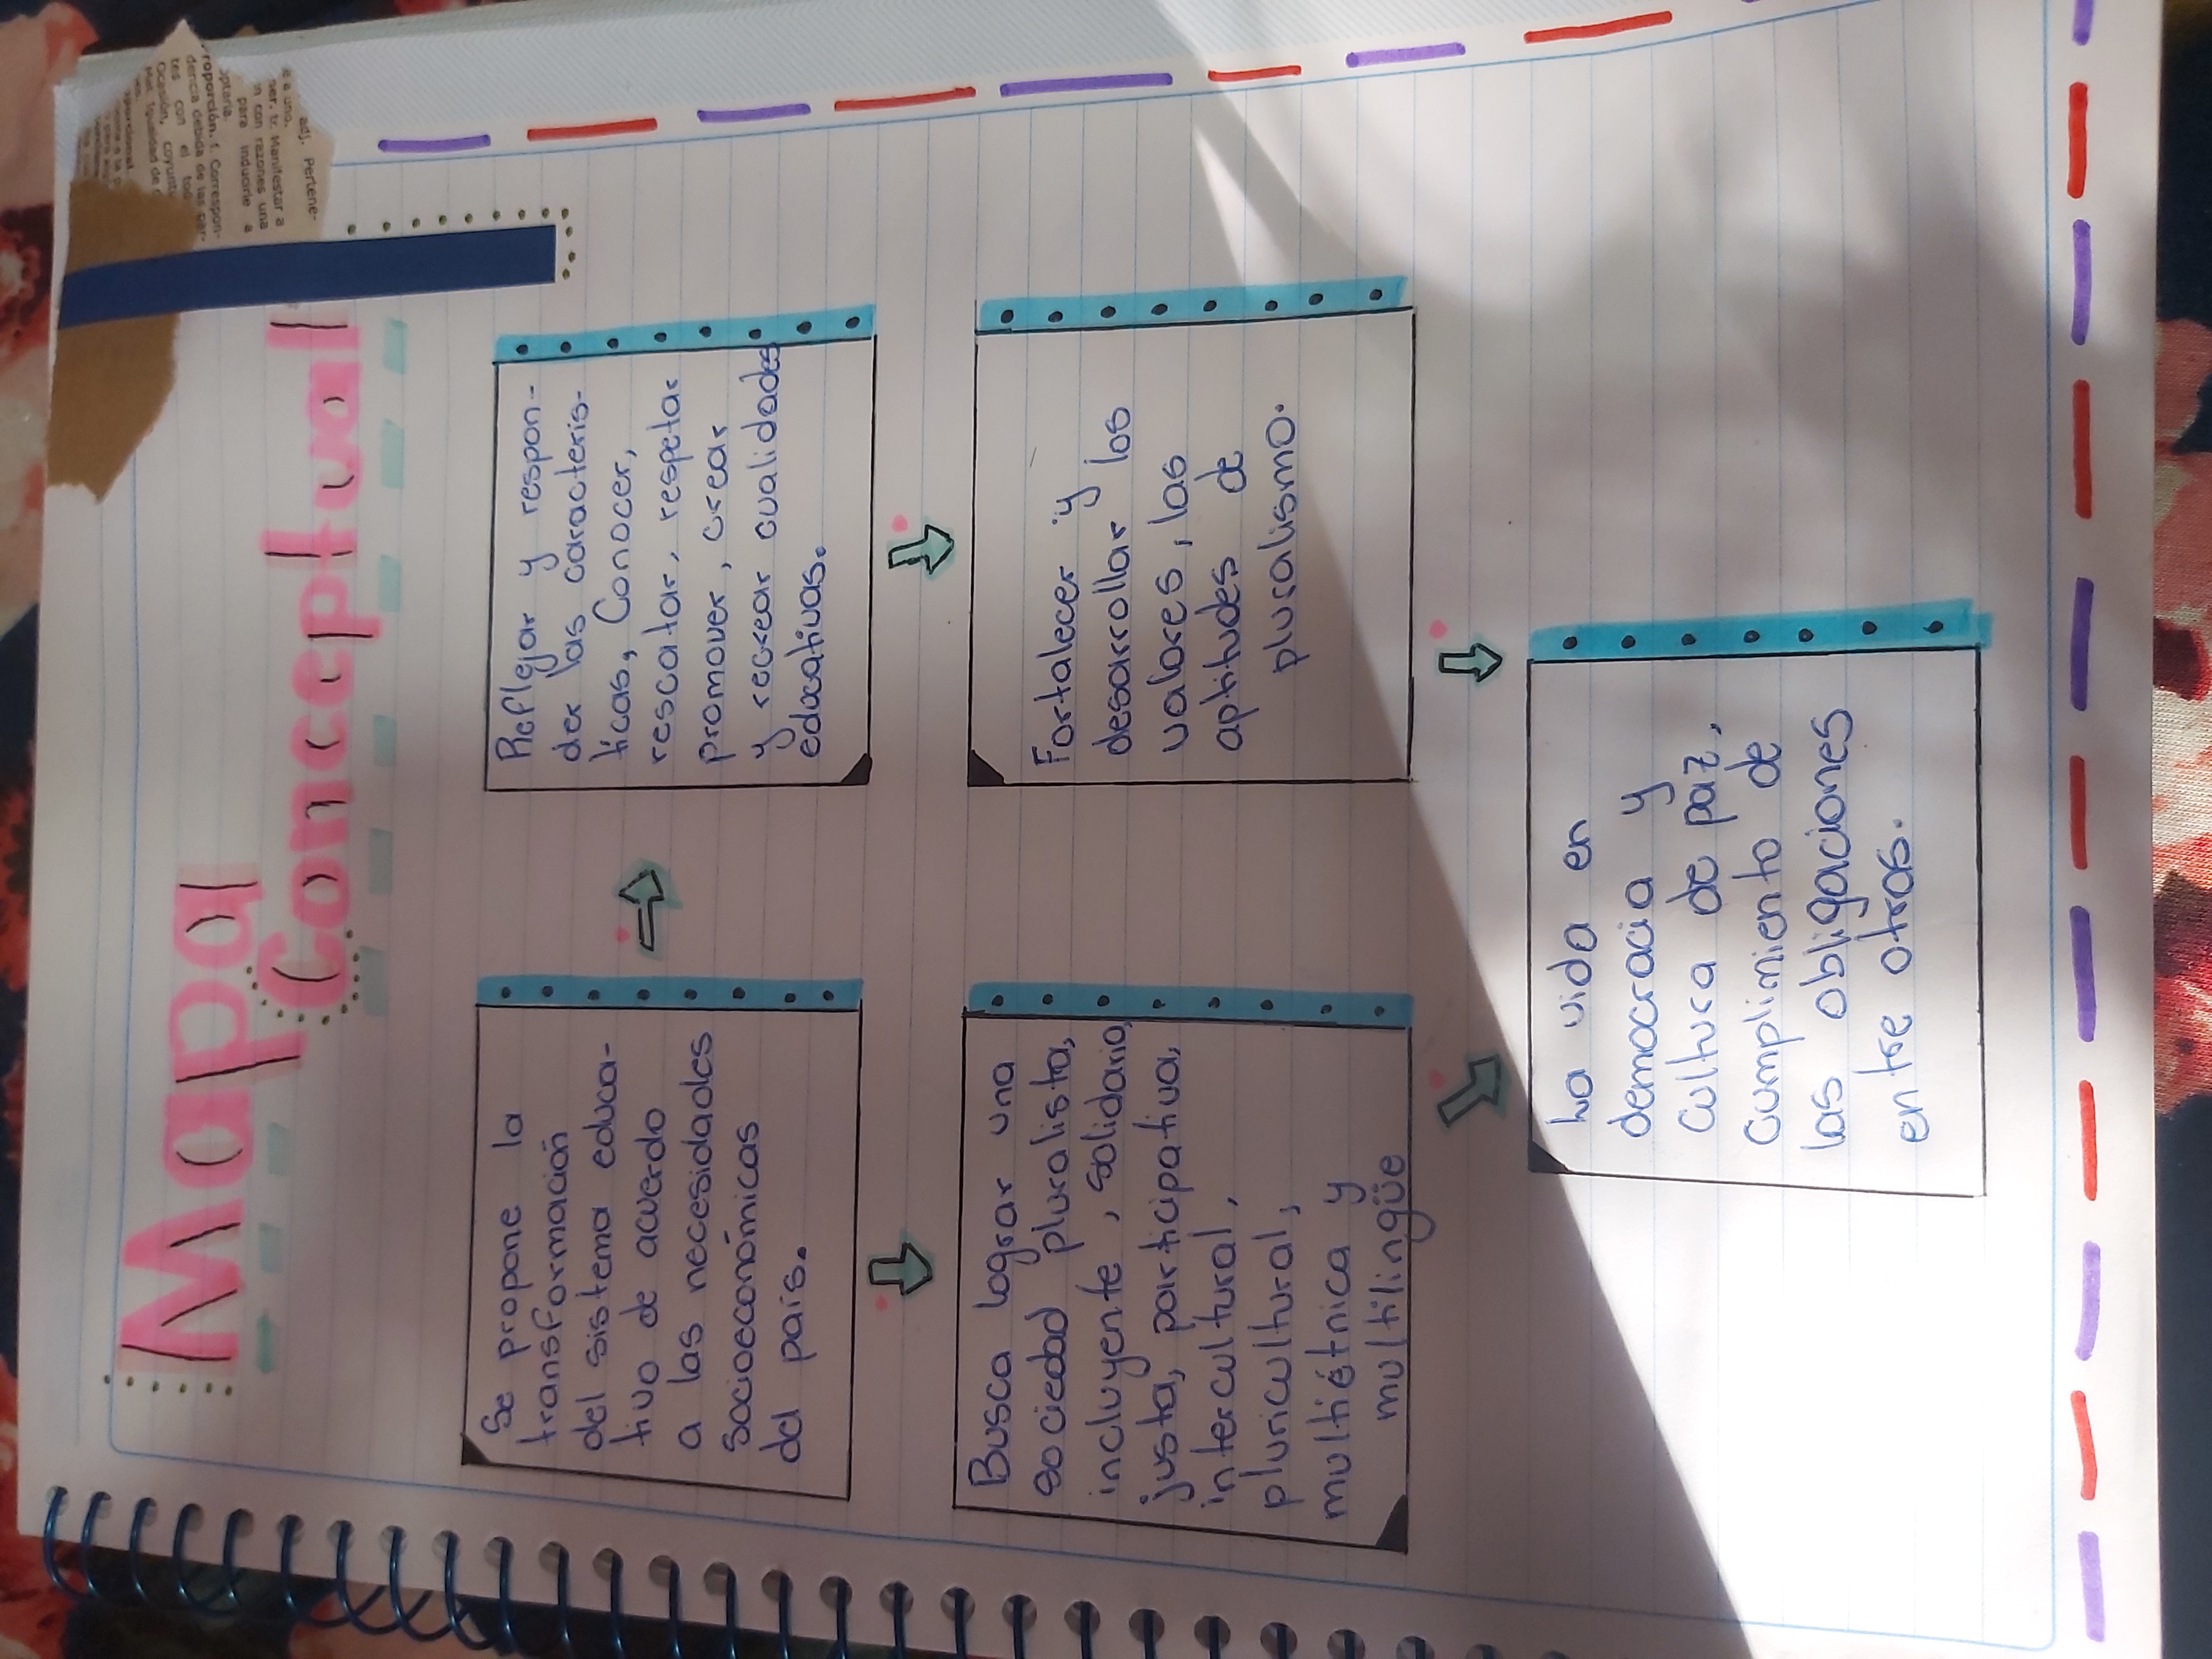 Mapa
Conceptual
Se propone la
transformación
del sistema educa-
tivo de acuerdo
a las necesidades
socioeconómicas
del país.
Reflejar y respon-
der las caracteris-
ticas, Conocer,
rescatar, respetar
promover, crear
y recrear cualidades
educativas.
Busca lograr una
sociedad pluralista,
incluyente, solidaria,
justa, participativa,
intercultural,
pluricultural,
multiétnica y
multilingüe
Fortalecer y
desarrollar los
valores, las
aptitudes de
pluralismo.
La vida en
democracia y
cultura de paz,
cumplimiento de
las obligaciones
entre otras.
adj. Pertene-
a uno.
ser. tr. Manifestar a
con razones una
para inducirle a
optarla.
roporción. f. Correspon-
dencia debida de las par-
tes con el todo
Ocasión, coyuntu
Mat. Igualdad de